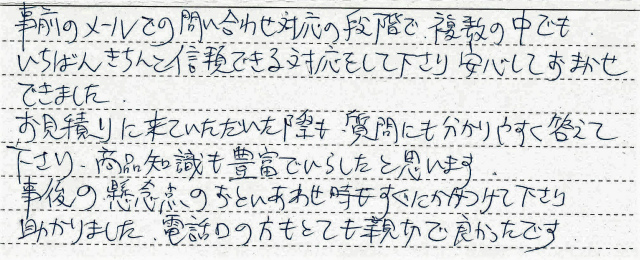 事前のメールでの問い合わせ対応の段階で、複数の中でも
いちばんきちんと信頼できる対応をして下さり安心しておまかせ
できました。
お見積りに来ていただいた際も、質問にも分かりやすく答えて
下さり、商品知識も豊富でいらしたと思います。
事後の懸念点のおといあわせ時もすぐにかけつけて下さり
助かりました。電話口の方もとても親切で良かったです。